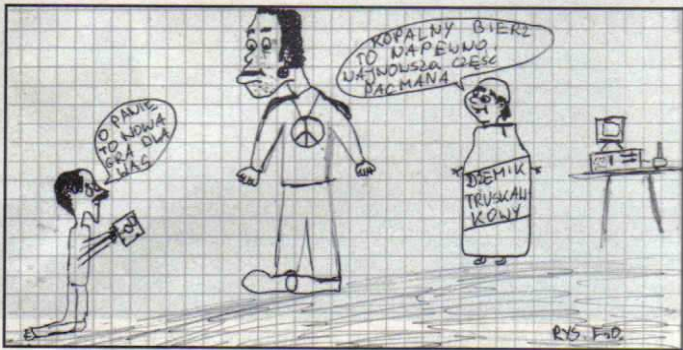 O PANIE
TO NOWA
GRA DLA
WAS
KOPALNY BIERZ
TO NAPEWNO
NAJNOWSZA CZĘŚĆ
PACMANA
DŻEMIK
TRUSKAW
KOWY
RYS. F&D.